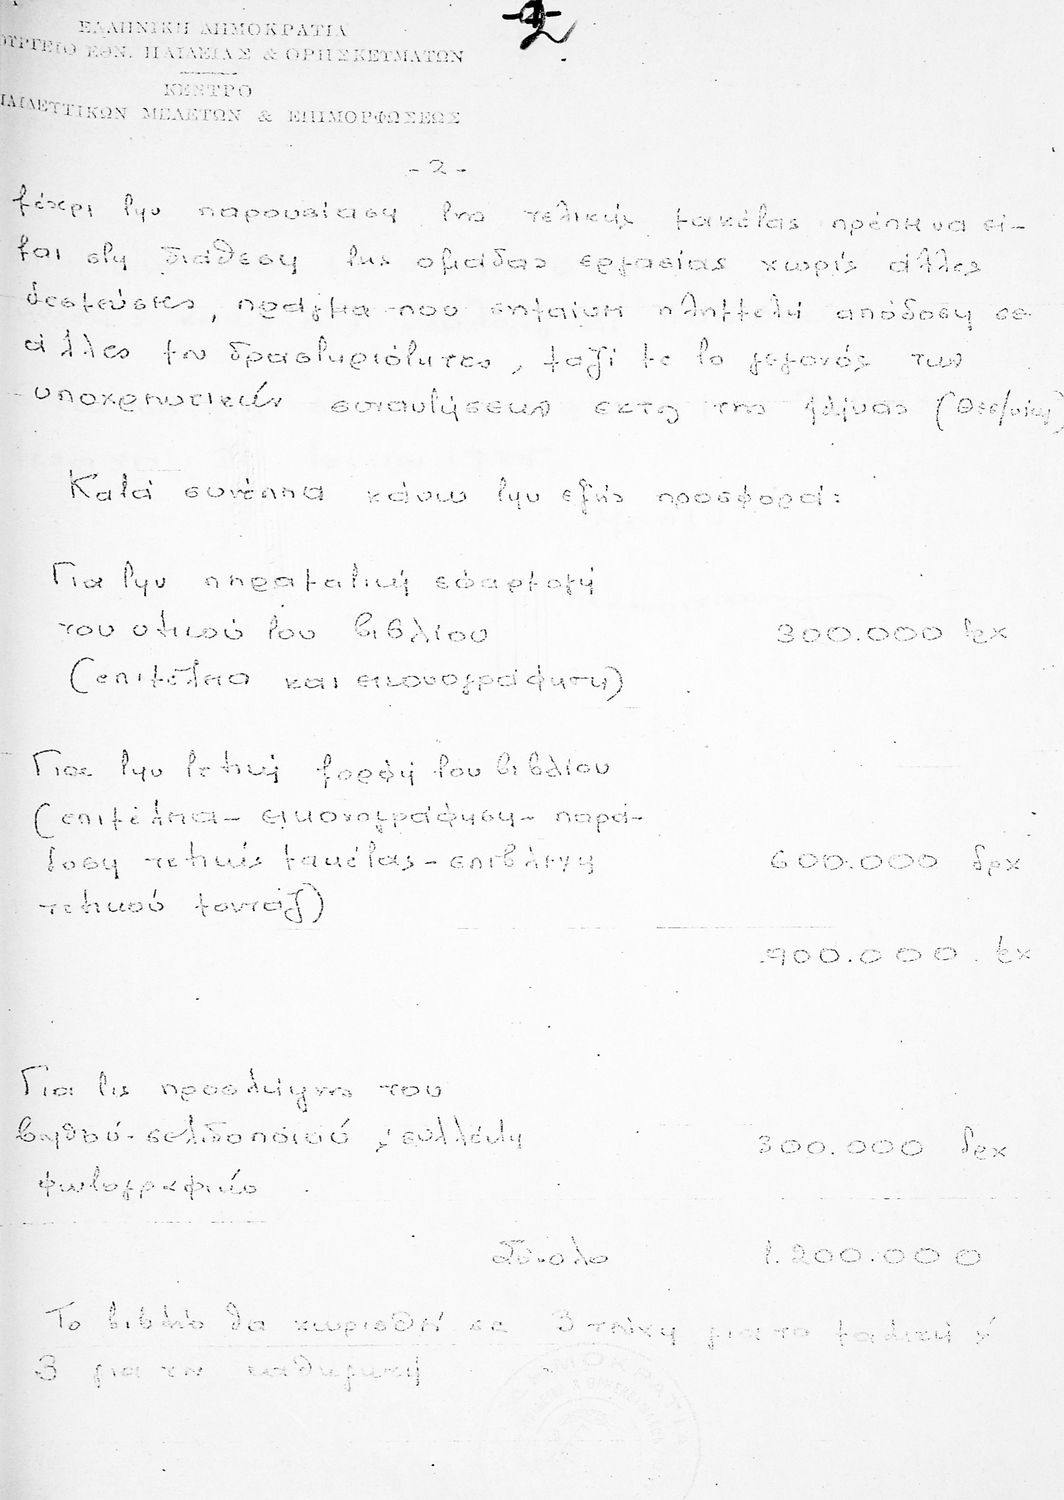 2
ΕΛΛΗΝΙΚΗ ΔΗΜΟΚΡΑΤΙΑ
ΟΥΡΓΕΙΟ ΕΘΝ. ΠΑΙΔΕΙΑΣ & ΘΡΗΣΚΕΥΜΑΤΩΝ
ΚΕΝΤΡΟ
ΠΑΙΔΕΥΤΙΚΩΝ ΜΕΛΕΤΩΝ & ΕΠΙΜΟΡΦΩΣΕΩΣ
- 2 -
μέχρι την παρουσίαση της τελικής μακέτας πρέπει να εί-
μαι στη διάθεση της ομάδας εργασίας χωρίς άλλες
δεσμεύσεις, πράγμα που σημαίνει πλημμελή απόδοση σε
άλλες μου δραστηριότητες, μαζί με το γεγονός των
υποχρεωτικών συναντήσεων εκτός της Αθήνας (Θεσ/νίκη)
Κατά συνέπεια κάνω την εξής προσφορά:
Για την πειραματική εφαρμογή
του υλικού του βιβλίου 300.000 δρχ
(επιμέλεια και εικονογράφηση)
Για την τελική μορφή του βιβλίου
(επιμέλεια - εικονογράφηση - παρά-
δοση τελικής μακέτας - επίβλεψη 600.000 δρχ
τελικού μοντάζ)
900.000 δρχ
Για τις προσλήψεις του
βοηθού - σελιδοποιού, συλλέκτη 300.000 δρχ
φωτογραφικό
σύνολο 1.200.000
Το βιβλίο θα χωρισθεί σε 3 τεύχη για το μαθητή
3 για τον καθηγητή